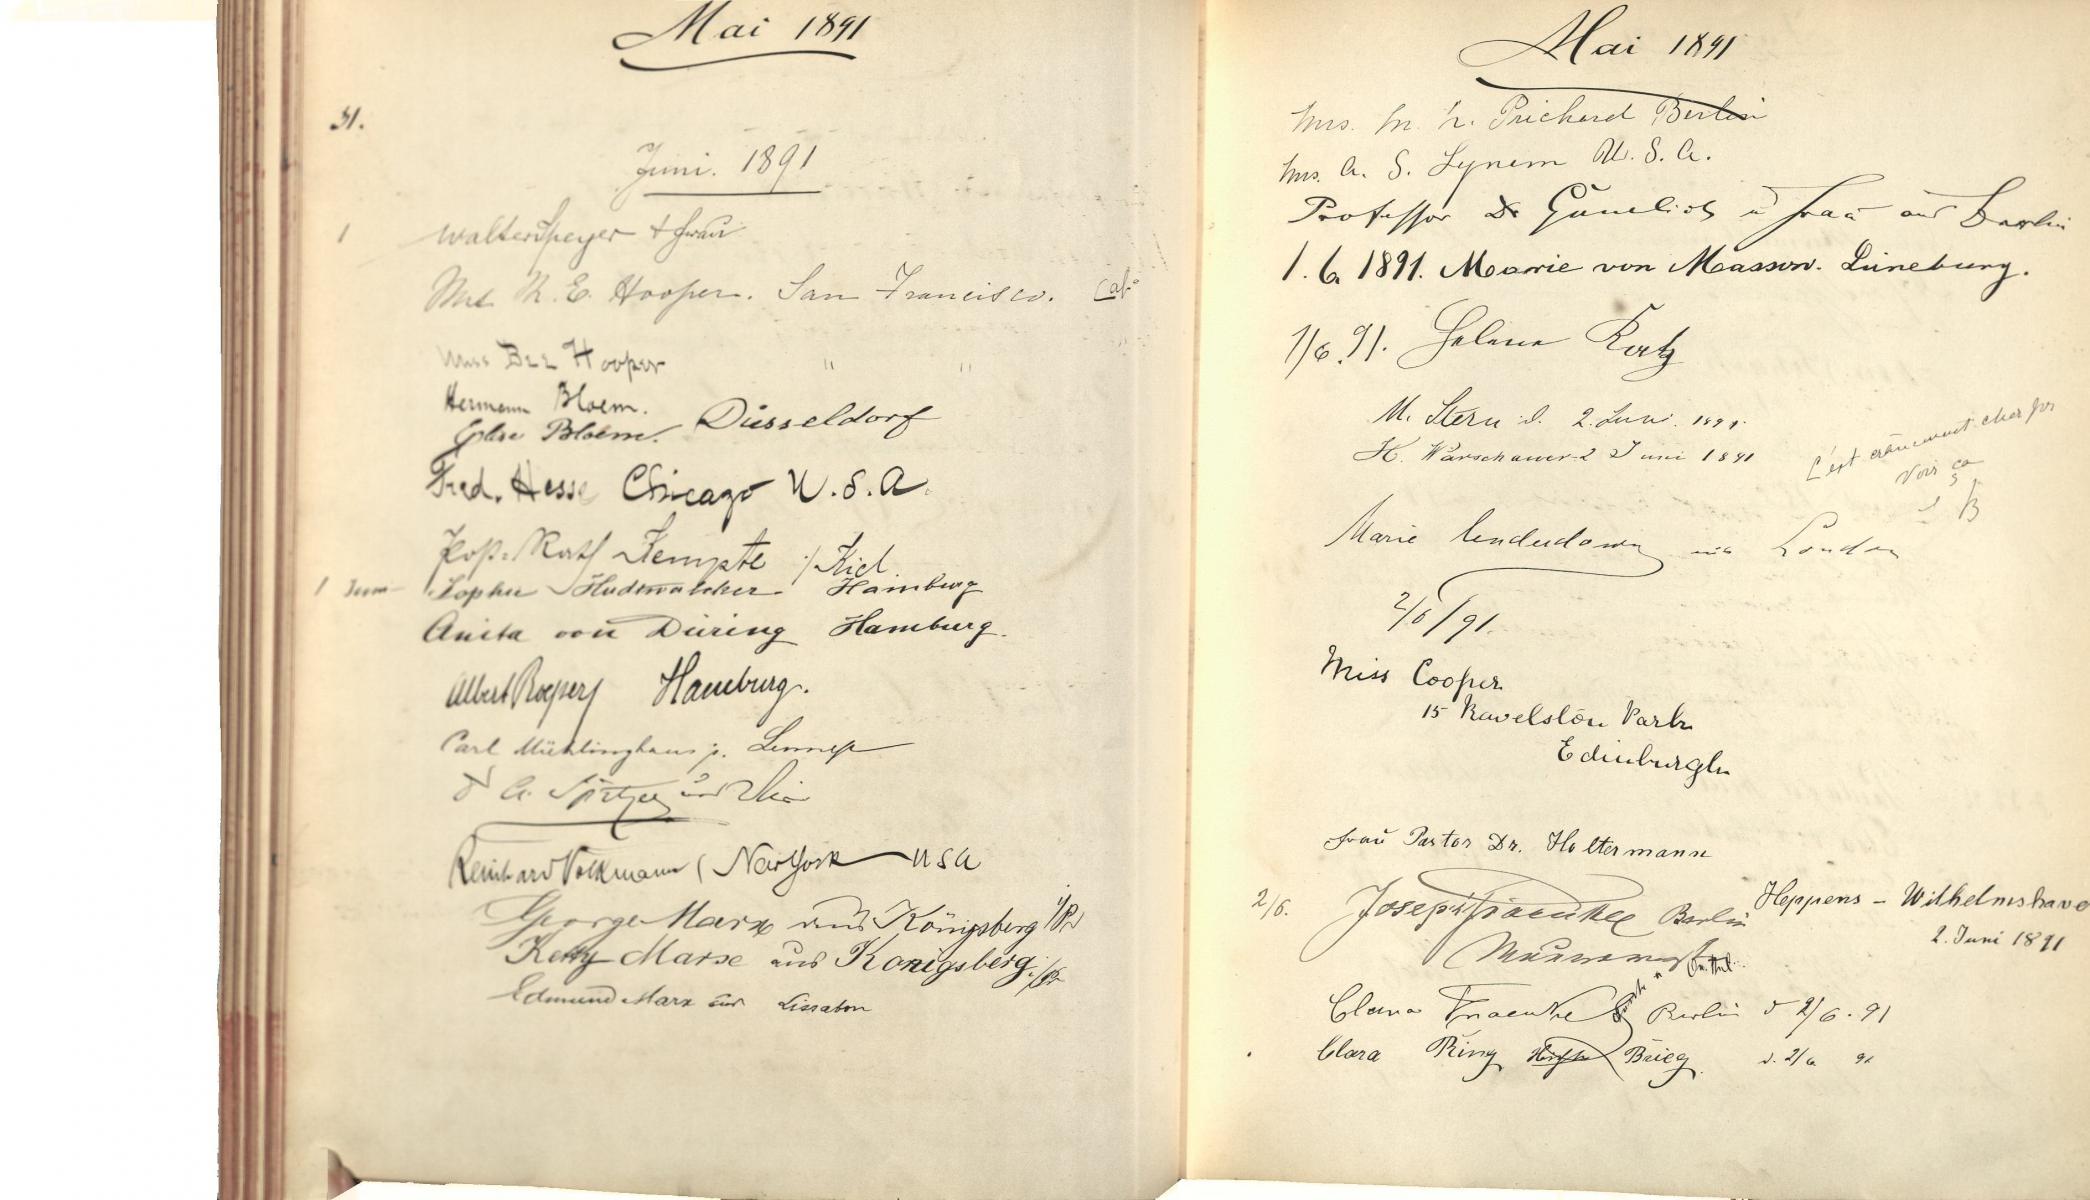 Mai 1891
31.
Juni. 1891
1 Walter Speyer + Frau
Mrs E. Hooper. San Francisco. Cal.
Miss Bee Hooper " "
Hermann Bloem.
Bloem. Düsseldorf
Fred. Hesse Chicago U.S.A.
Kiel
1 Juni Sophie Hudtwalcker Hamburg
Anita von Düring Hamburg.
Albert Roeper Hamburg.
Carl Mühlinghaus Lennep
Reinhard Volkmann New York USA
George Marx aus Königsberg i/Pr
Ketty Marx aus Königsberg i/Pr
Edmund Marx aus Lissabon
Mai 1891
Mrs. Prichard Berlin
Mrs. A. S. Lynem U.S.A.
Professor Dr u Frau aus Berlin
1. 6. 1891. Marie von Masson. Lüneburg.
1/6. 91. Helene
M. Stern d. 2. Juni. 1891.
H. Warschauer 2 Juni 1891
C'est cher pr
voir ça
Marie London
2/6/91.
Miss Cooper
15 Ravelston Park
Edinburgh
Frau Pastor Dr. Holtermann
Heppens - Wilhelmshave
2. Juni 1891
2/6. Joseph Fraenkel Berlin
Clara Fraenkel Berlin d 2/6. 91
Clara Ring Brieg d. 2/6 91